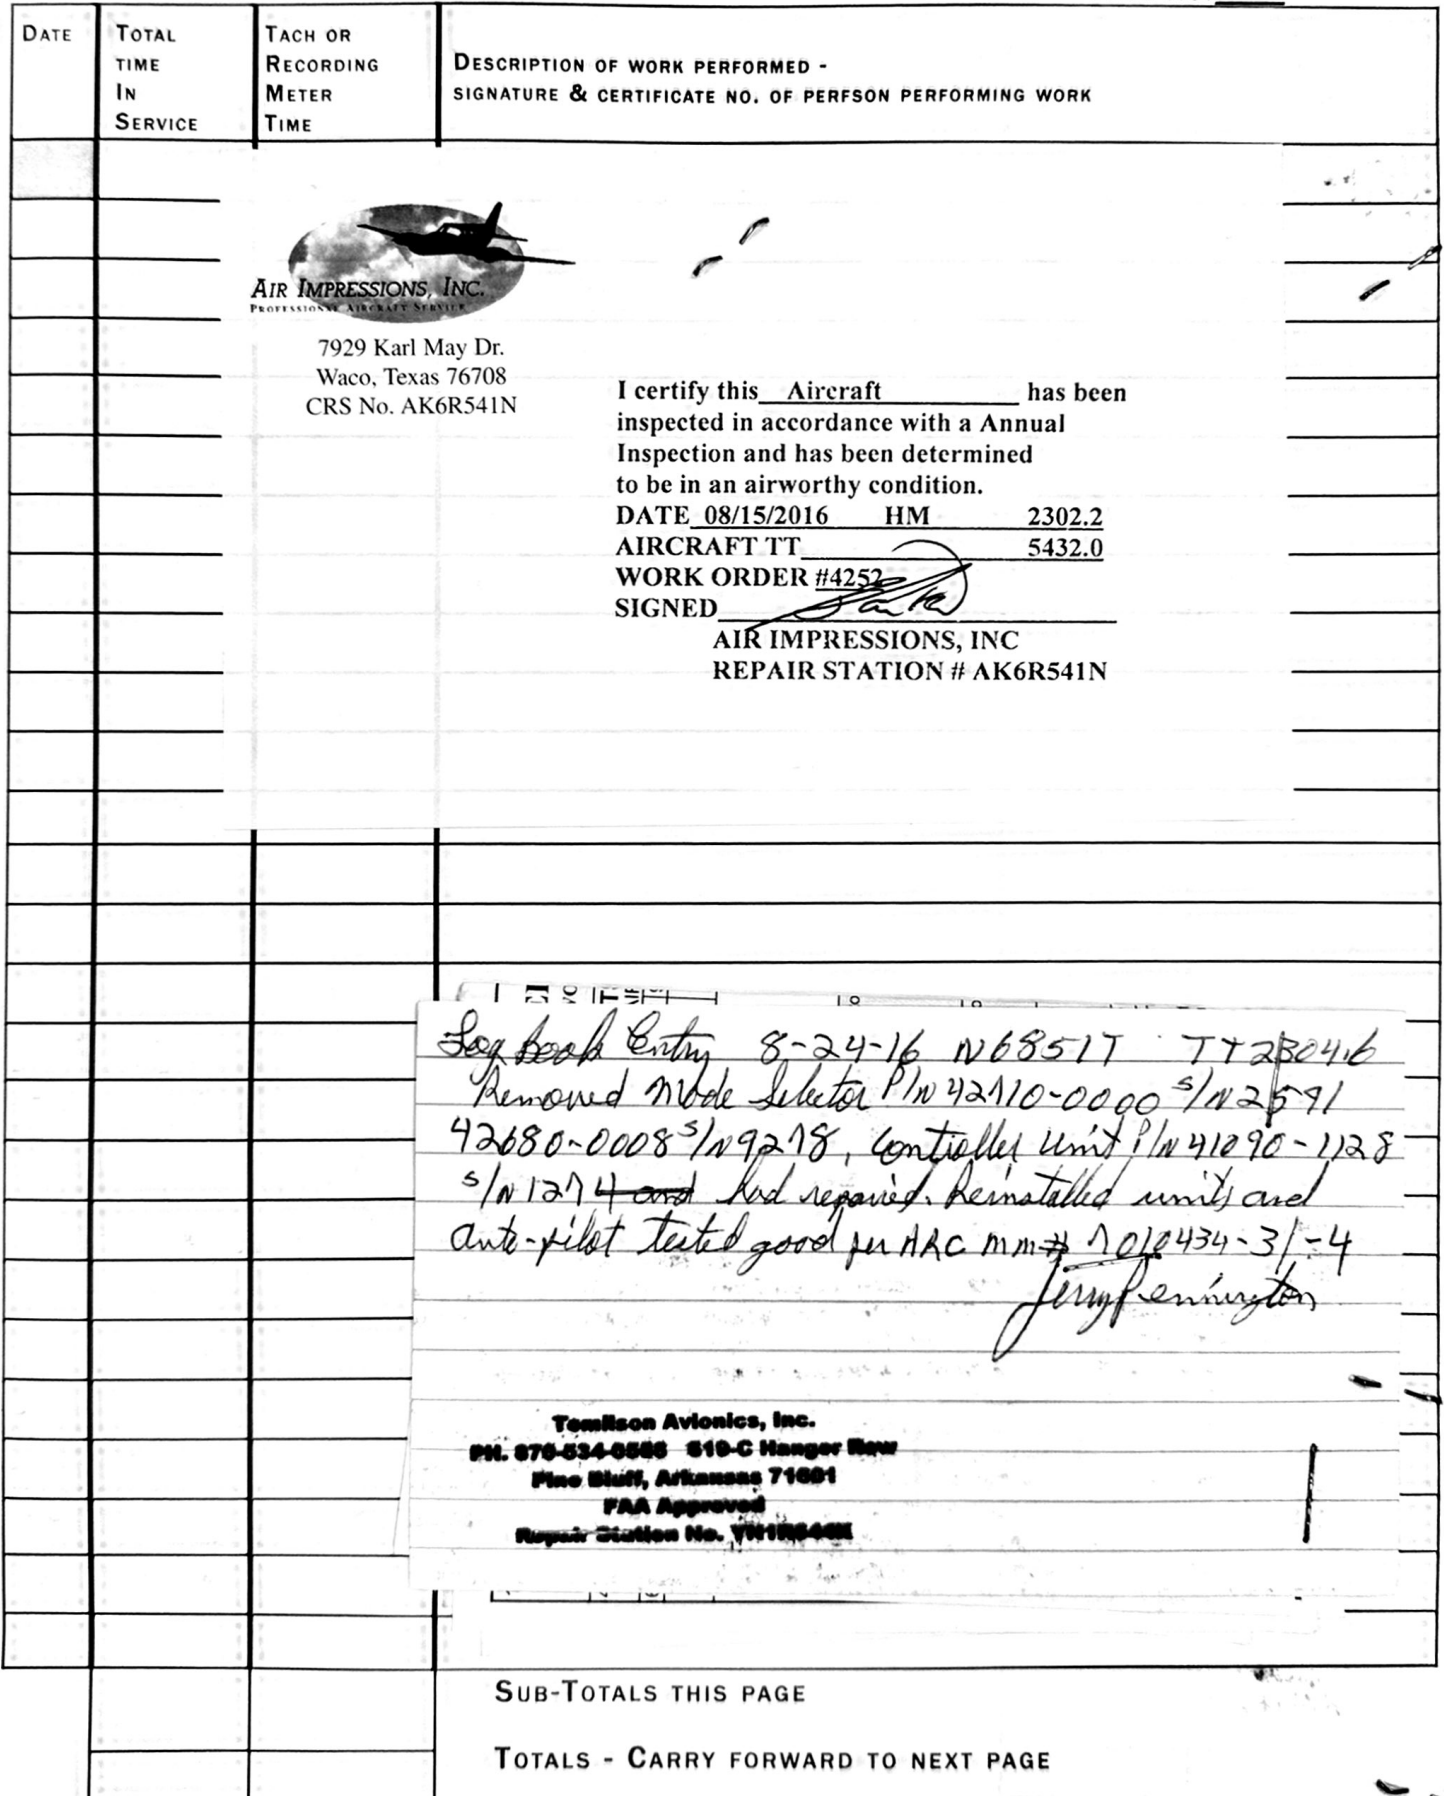 DATE
TOTAL TIME IN SERVICE
TACH OR RECORDING METER TIME
DESCRIPTION OF WORK PERFORMED -
SIGNATURE & CERTIFICATE NO. OF PERFSON PERFORMING WORK
AIR IMPRESSIONS, INC.
PROFESSIONAL AIRCRAFT SERVICE
7929 Karl May Dr.
Waco, Texas 76708
CRS No. AK6R541N
I certify this Aircraft has been
inspected in accordance with a Annual
Inspection and has been determined
to be in an airworthy condition.
DATE 08/15/2016 HM 2302.2
AIRCRAFT TT 5432.0
WORK ORDER #4252
SIGNED
AIR IMPRESSIONS, INC
REPAIR STATION # AK6R541N
Log Book Entry 8-24-16 N6851T TT2304.6
Removed Mode Selector P/N 42710-0000 S/N 2591
42680-0008 S/N 9278, Controller Unit P/N 41090-1128
S/N 1274 and had repaired. Reinstalled units and
auto-pilot tested good per ARC MM# 7010434-3/-4
Jerry Pennington
Tomlison Avionics, Inc.
PH. 870-534-0566 519-C Hanger Row
Pine Bluff, Arkansas 71601
FAA Approved
Repair Station No.
SUB-TOTALS THIS PAGE
TOTALS - CARRY FORWARD TO NEXT PAGE